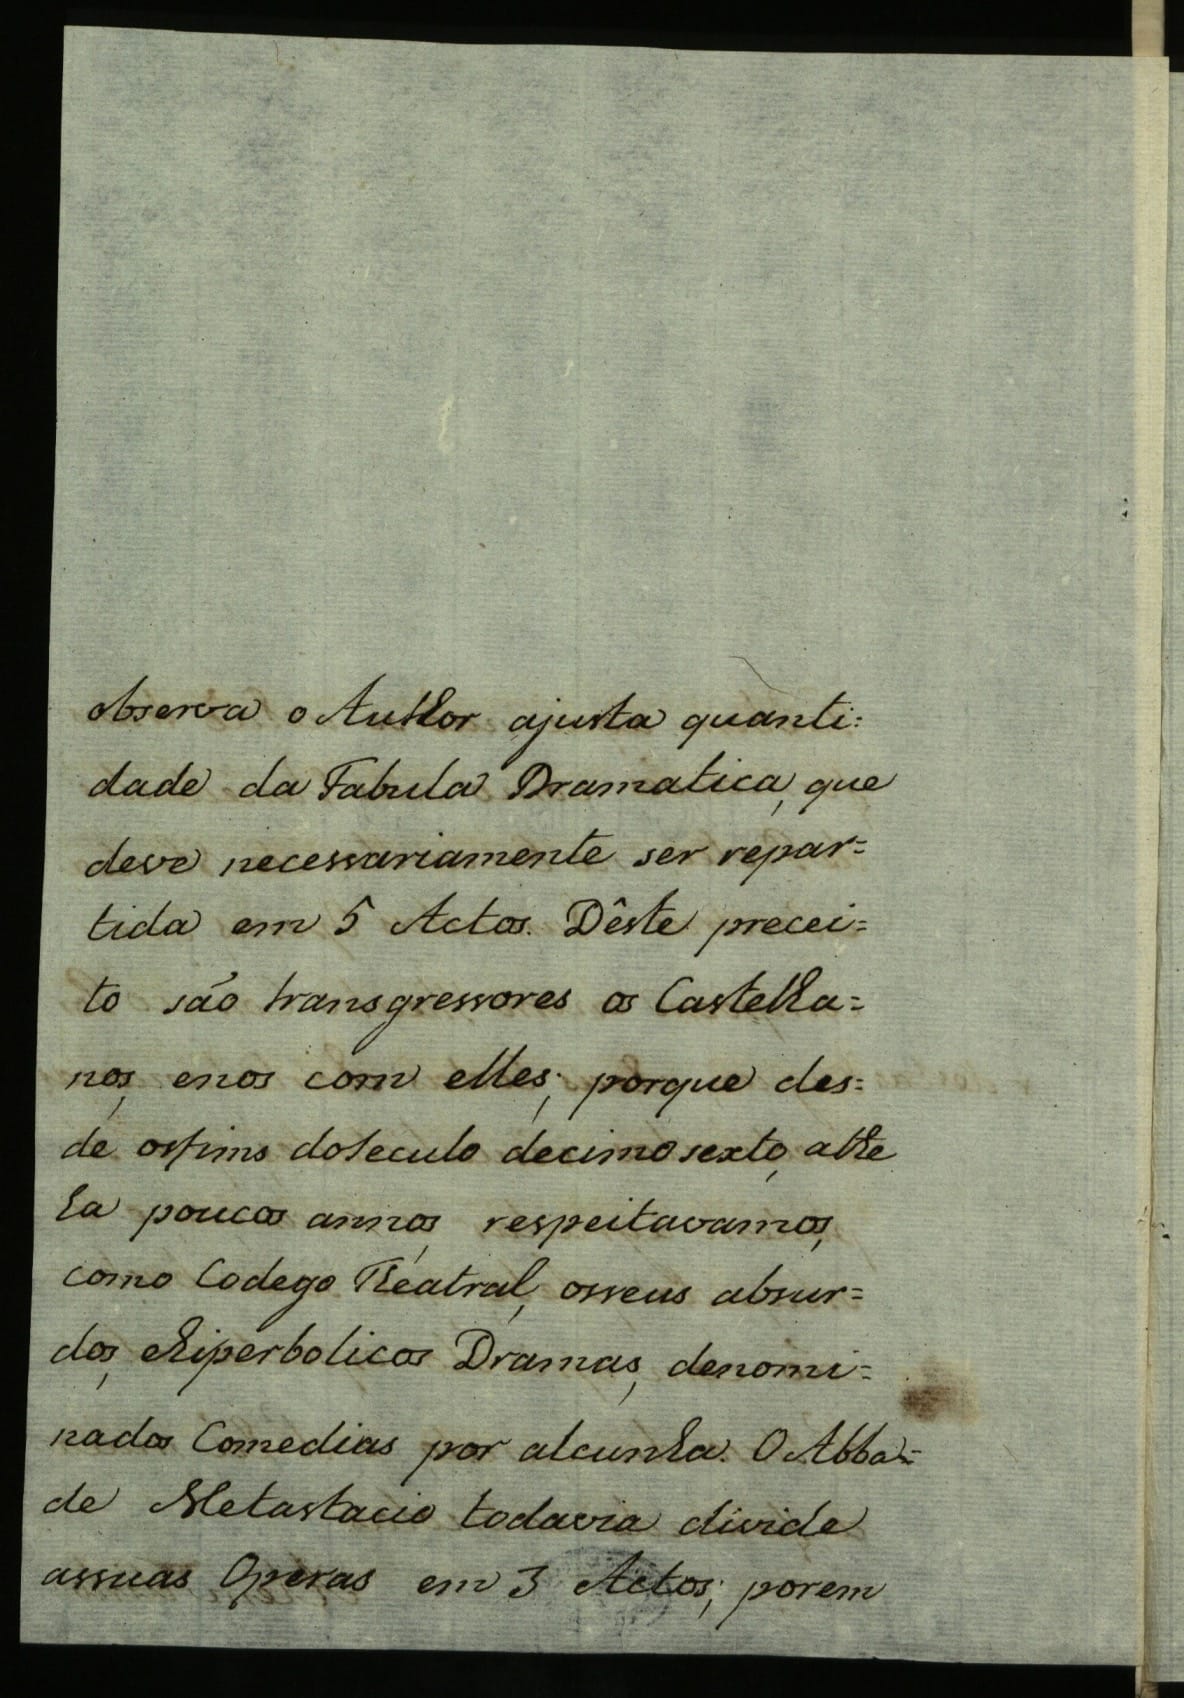 observa o Author ajusta quanti=
dade da Fabula Dramatica, que
deve necessariamente ser repar=
tida em 5 Actos. Dêste precei=
to são transgressores os Castelha=
nos, enos com elles; porque des=
de osfins doseculo decimo sexto, athe
ha poucos annos, respeitavamos,
como Codego Theatral, osseus absur=
dos, ehiperbolicos Dramas, denomi=
nados Comedias por alcunha. O Abba=
de Metastacio todavia divide
assuas Operas em 3 Actos; porem